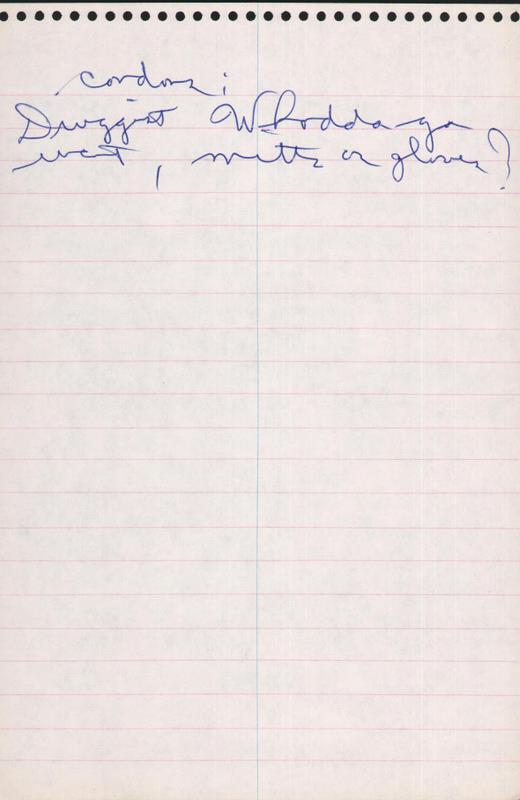 condoms:
Druggist Whoddaya
want, mitts or gloves?